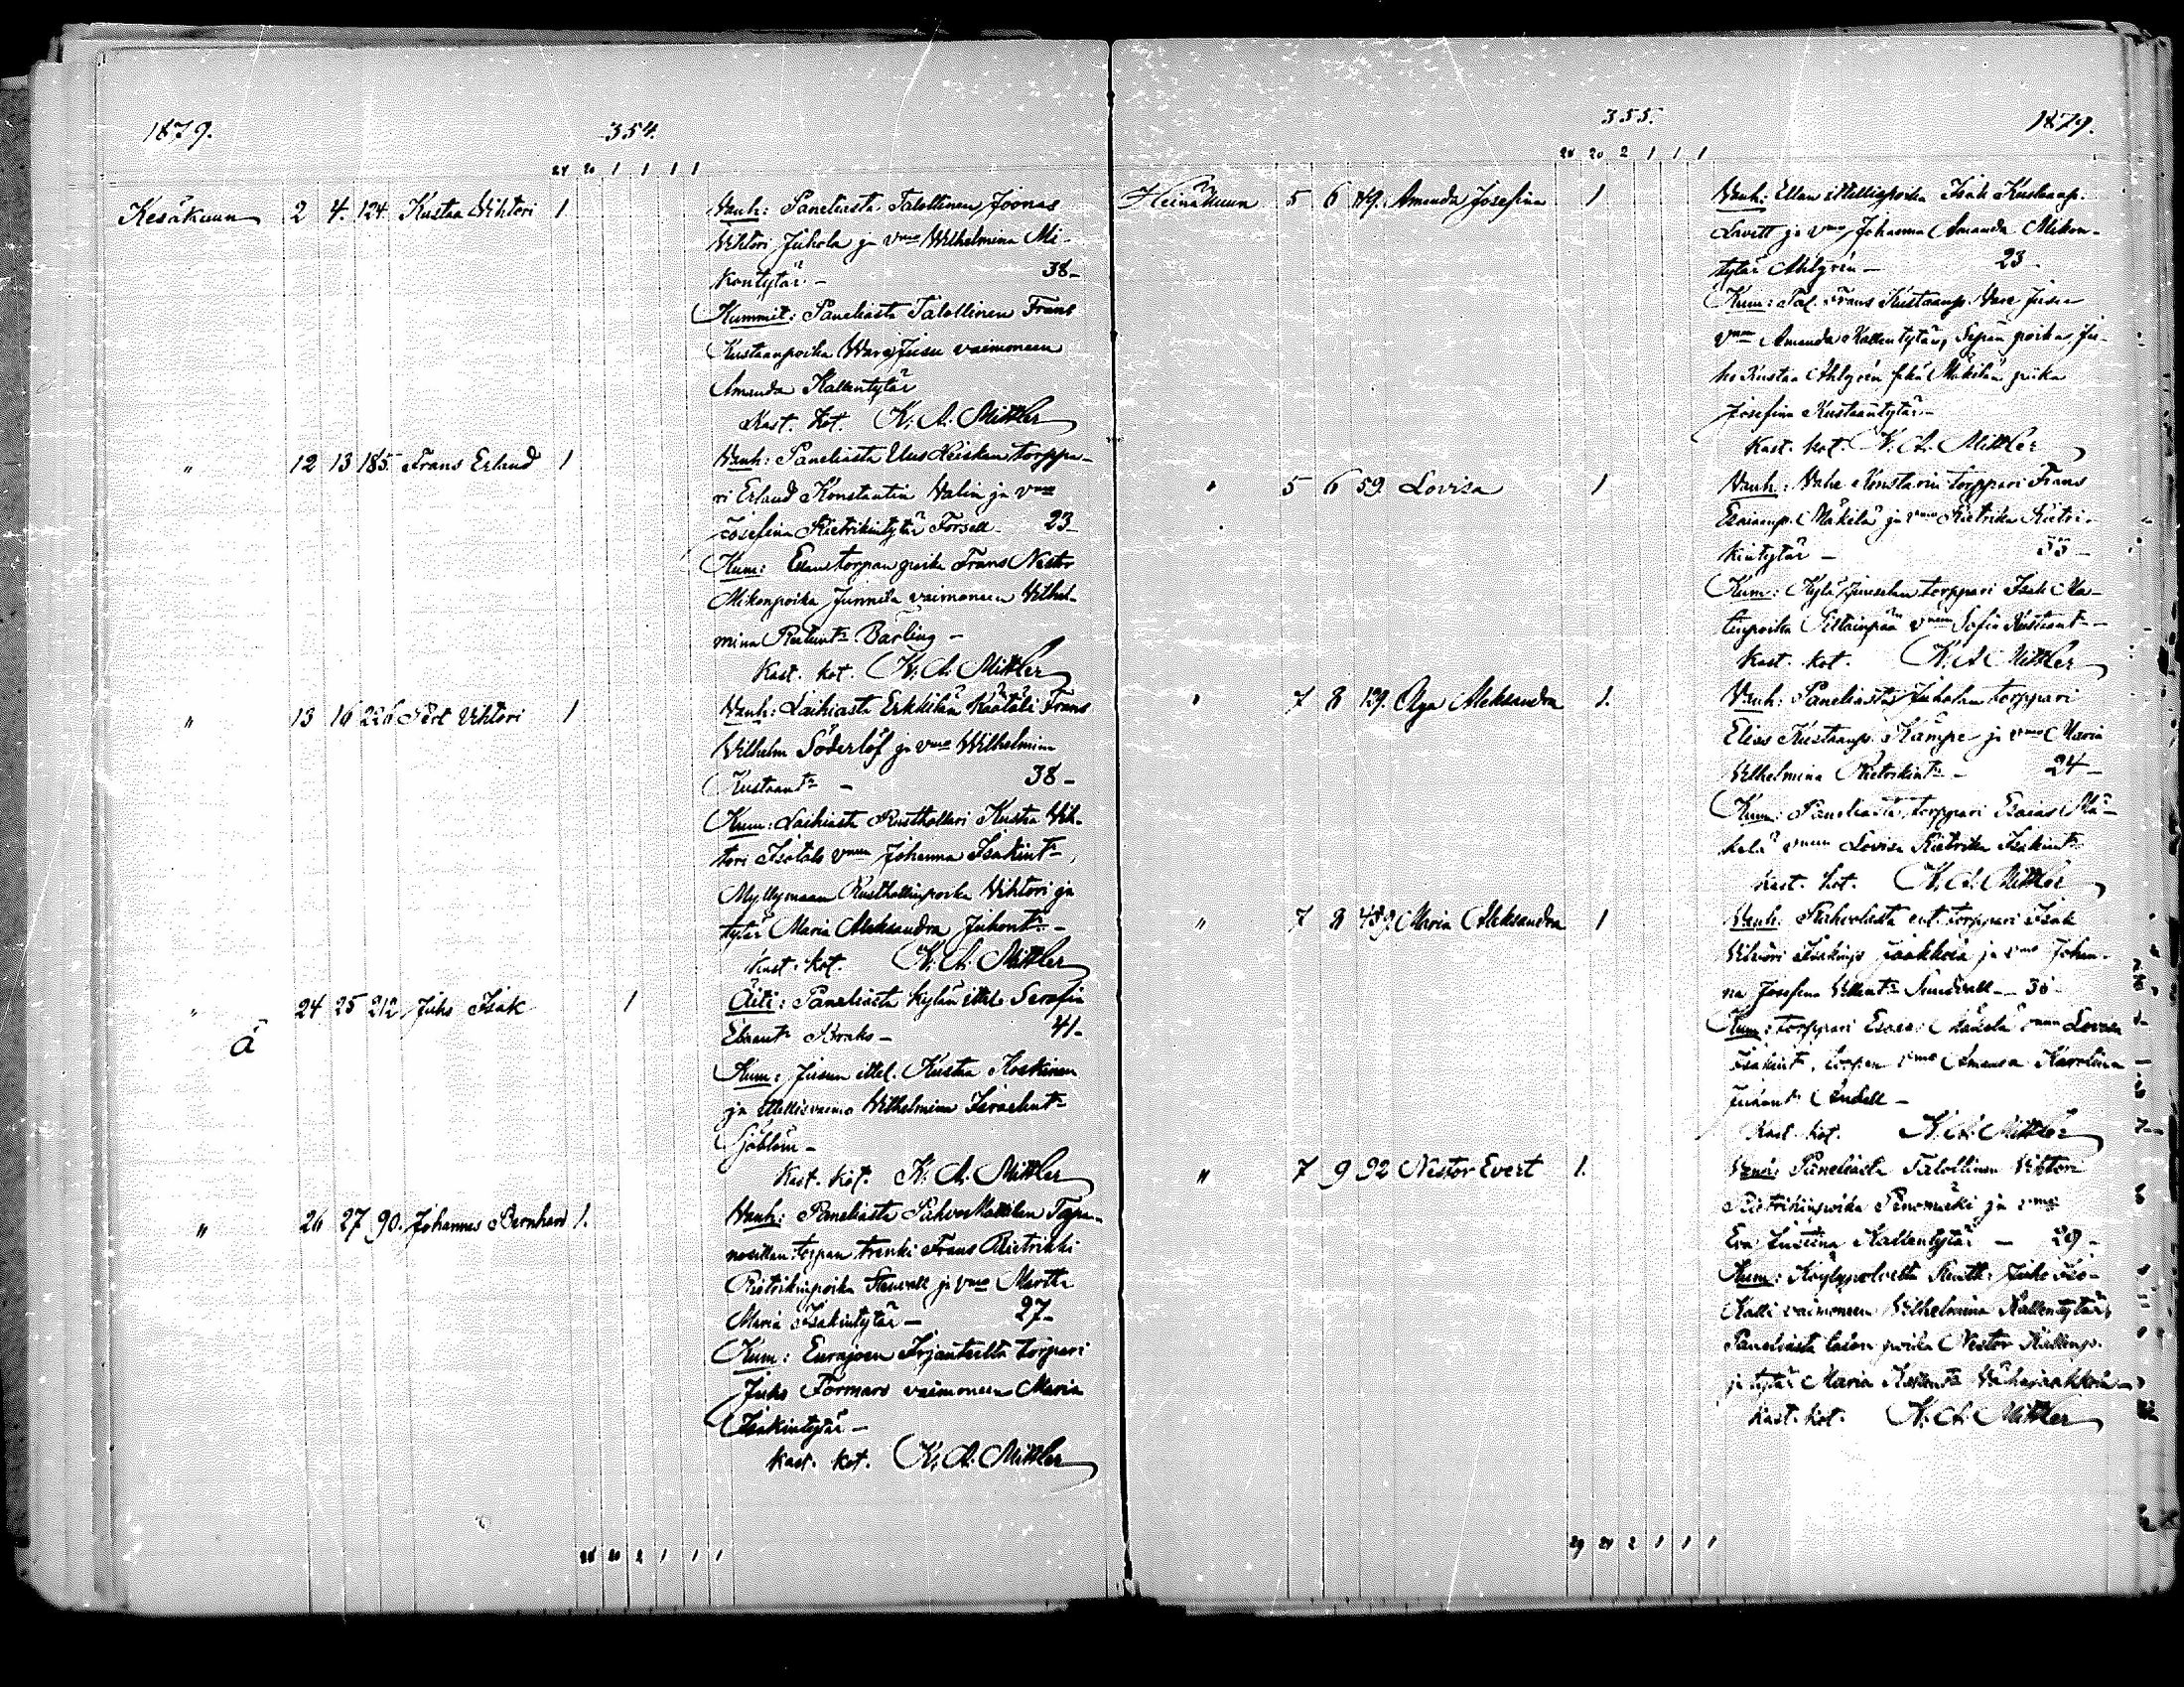 1879.
354.
24 20 1 1 1 1
Kesäkuun 2 4. 124. Kustaa Vihtori 1
Vanh: Paneliasta Talollinen Joonas
Vihtori Juhola ja vmo Wilhelmina Mi-
kontytär – 38–
Kummit: Paneliasta Talollinen Frans
Kustaanpoika Vare Juusu vaimoneen
Amanda Kallentytär
Kast. kot. K. A. Mittler
" 12 13 185. Frans Erland 1
Vanh: Paneliasta torppa-
ri Erland Konstantin Valin ja vmo
Josefina Kietrikintytär Forsell 23
Kum: torpan poika Frans Nestor
Mikonpoika Junnila vaimoneen Vilhel-
mina Bärling –
Kast. kot. K. A. Mittler
" 13 16 226 Vihtori 1
Vanh: Laihiasta Erkkilän Frans
Wilhelm Söderlöf ja vmo Wilhelmina
Kustaant: – 38–
Kum: Laihiasta Rusthollari Kustaa Vih-
tori Isotalo vmneen Johanna Isakint:
Myllymaan Rusthollinpoika Vihtori ja
tytär Maria Aleksandra Juhont: –
Kast. kot. K. A. Mittler
" 24 25 212 Juho Isak 1
Ä
Äiti: Paneliasta kylän ittel. Serafia
41–
Kum: Juusun ittel. Kustaa Koskinen
ja ittellisvaimo Vilhelmina Israelint:
Sjöblom –
Kast. kot. K. A. Mittler
" 26 27 90. Johannes Bernhard 1.
Vanh: Paneliasta
torpan trenki Frans Rietrikki
Rietrikinpoika Stenvall ja vmo Martta
Maria Isakintytär – 27–
Kum: Eurajoen Irjanteelta torpari
Juho Forman vaimoneen Maria
Isakintytär –
Kast. kot. K. A. Mittler
28 20 2 1 1 1
355.
1879.
28 20 2 1 1 1
Heinäkuun 5 6 Amanda Josefina 1
Vanh: ittellispoika Isak Kustaanp.
ja vmo Johanna Amanda Mikon-
tytär Ahlgrén – 23–
Kum: Tal. Frans Kustaanp. Vare Juusu
vmn Amanda Kallentytär, Sepän poika Ju-
ho Kustaa Ahlgrén sekä Mäkilän piika
Josefina Kustaantytär –
Kast. kot. K. A. Mittler
" 5 6 59. Lovisa 1
Vanh: torppari Frans
Esaianp. Mäkilä ja vmo Rietrika Rietri-
kintytär –
Kum: torppari Isak Ma-
tinpoika vmneen Sofia Kustaant: –
Kast. kot. K. A. Mittler
" 7 8 139. Olga Aleksandra 1.
Vanh: Paneliasta Juholan torppari
Elias Kustaanp. Kämpe ja vmo Maria
Vilhelmina Rietrikint: – 24–
Kum: Paneliasta torppari Esaias Mä-
kelä vmneen Lovisa Rietrika Isakint:
Kast. kot. K. A. Mittler
" 7 8 489. Maria Aleksandra 1
Vanh. torppari Isak
Vihtori Jaakkola ja vmo Johan-
na Josefina Sundvall –
Kum: torppari Esaias Mäkelä vmn Lovisa
Isakint. vmo Amanda Karolina
Juhont: Andell –
Kast. kot. K. A. Mittler
" 7 9 92 Nestor Evert 1.
Vanh: Paneliasta Talollinen Vihtori
Rietrikinpoika Penomäki ja vmo
Eva Justiina Kallentytär – 29–
Kum: Köyliöpolvelta Rusth. Juho Iso-
Kalli vaimoneen Vilhelmina Kallentytär,
Paneliasta talon poika Nestor Kallenp.
ja tytär Maria Vähäjaakkola –
Kast. kot. K. A. Mittler
29 24 2 1 1 1